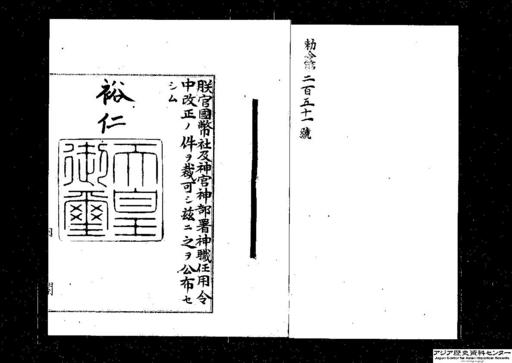 勅令第二百五十一號
朕官國幣社及神宮神部署神職任用令
中改正ノ件ヲ裁可シ茲ニ之ヲ公布セ
シム
裕仁
天皇
御璽
内
閣
アジア歴史資料センター
Japan Center for Asian Historical Records